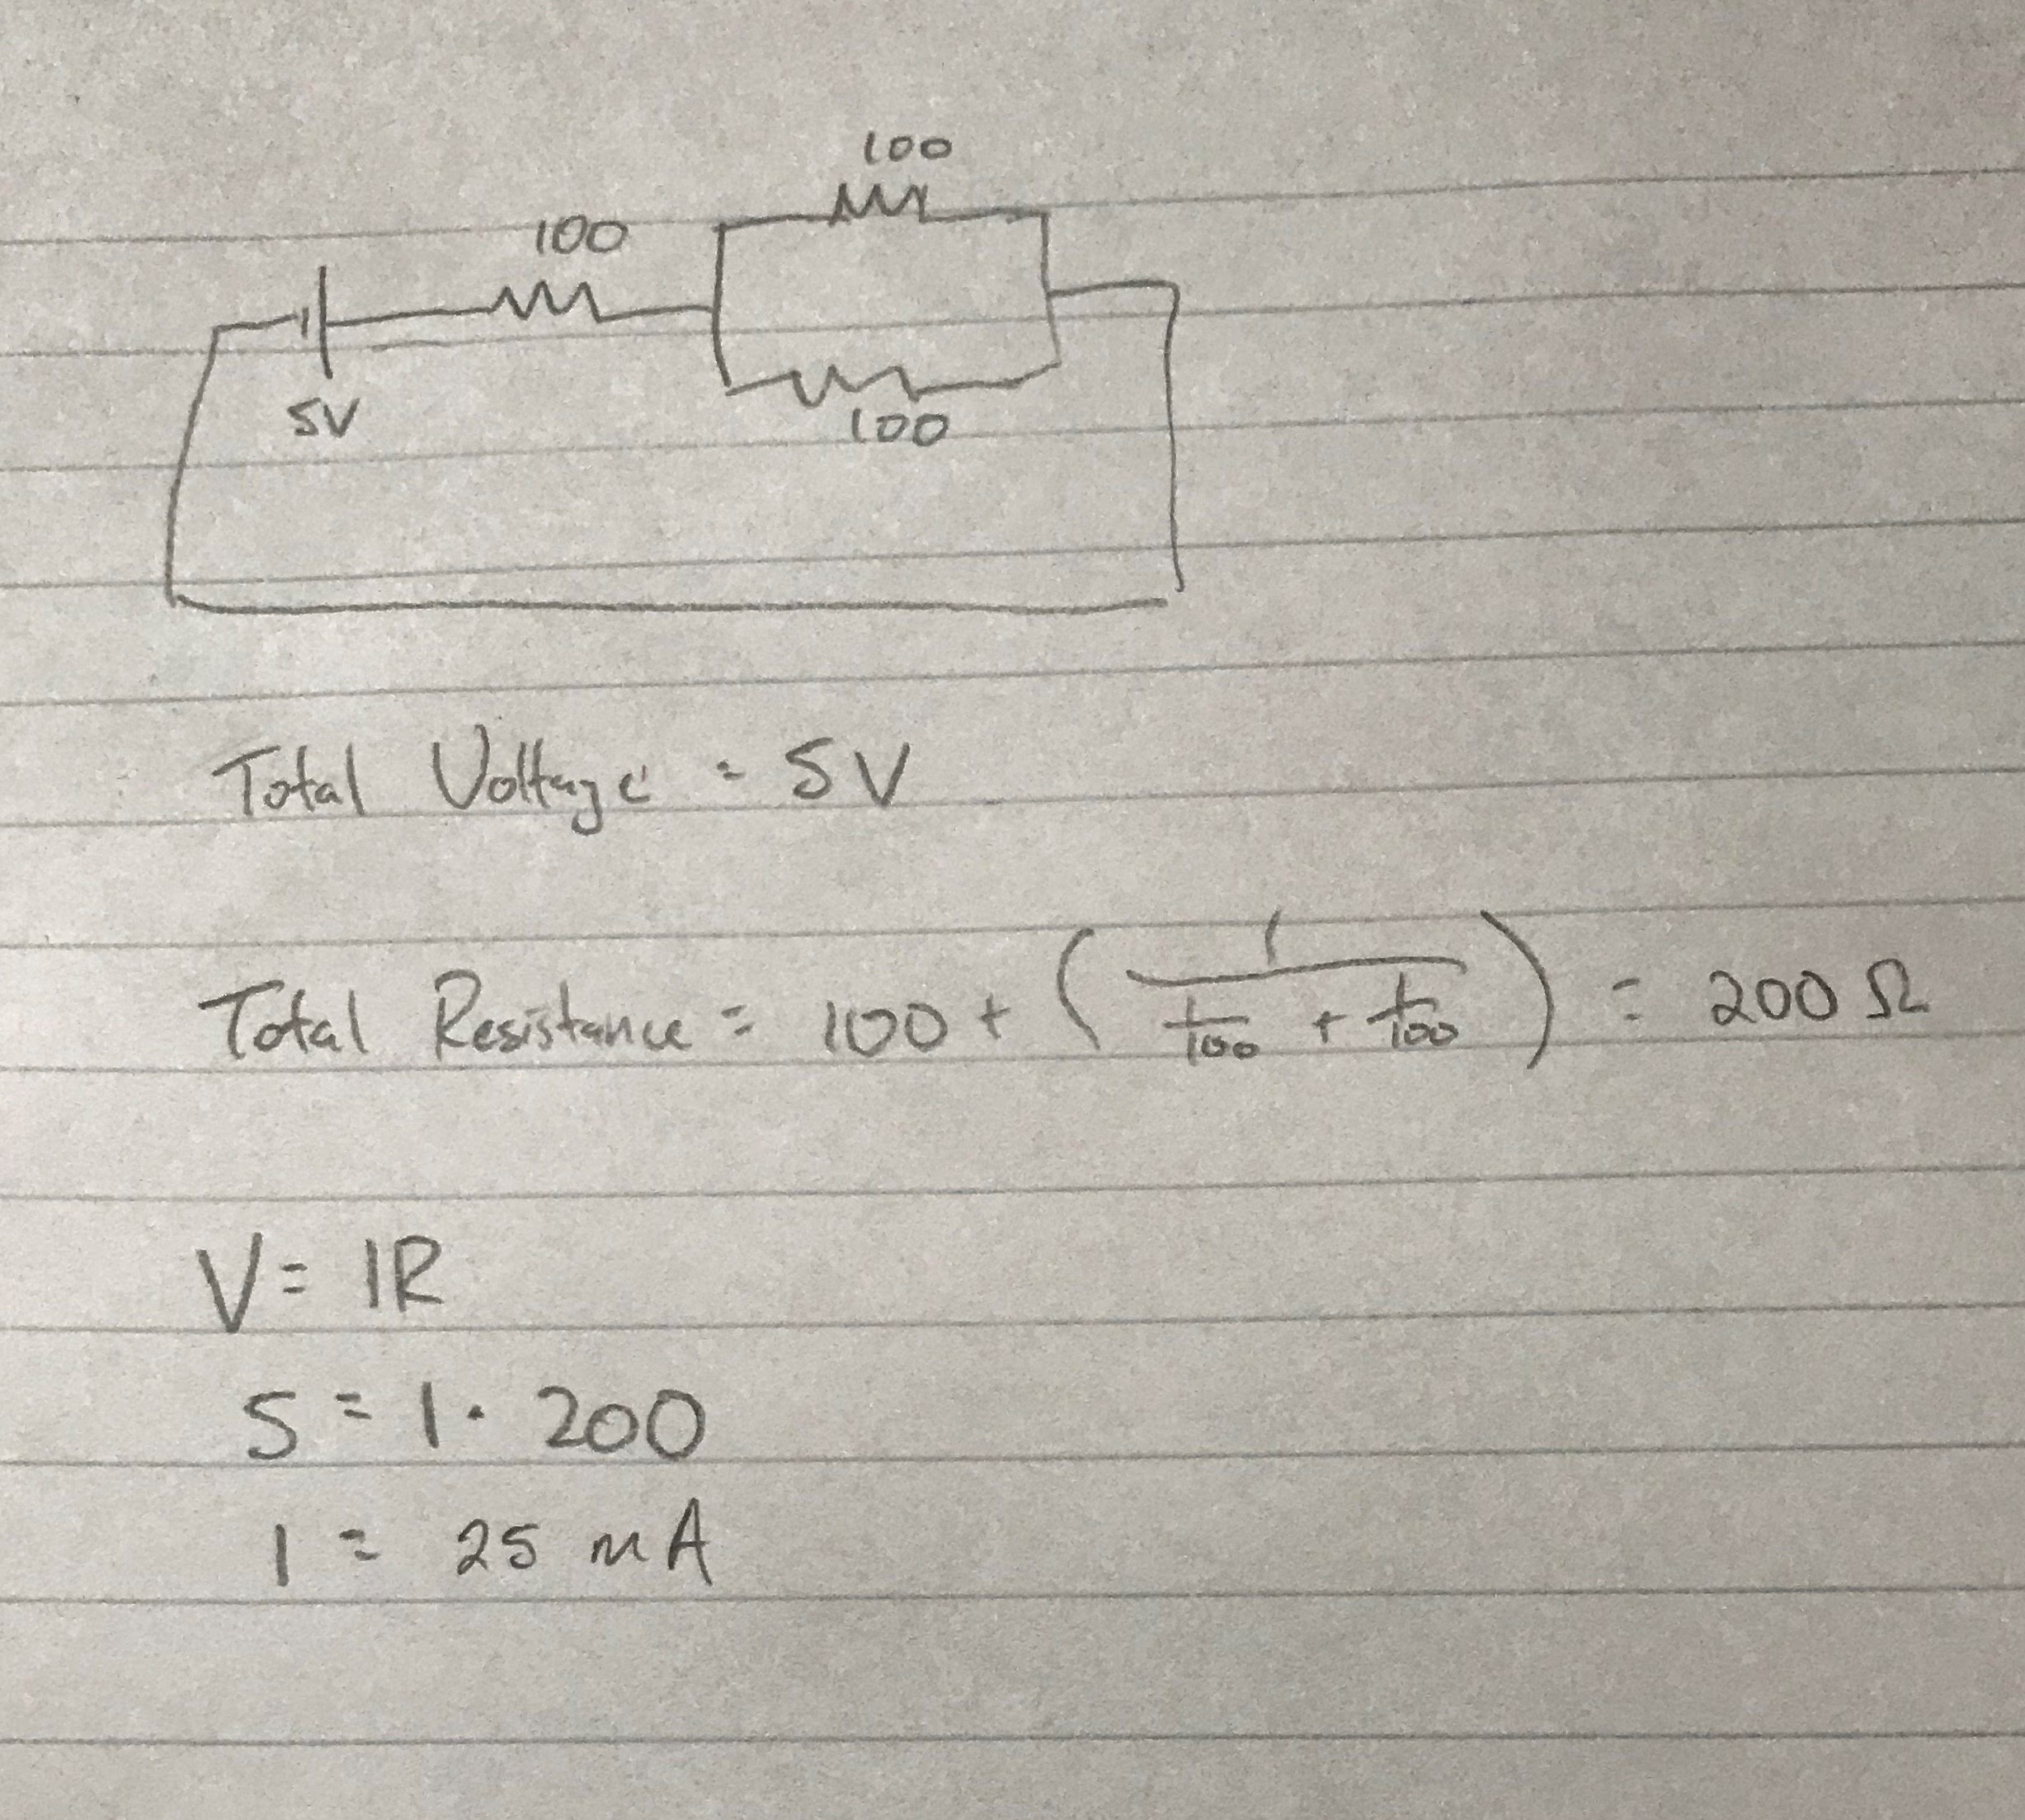 100
100
5V
100
Total Voltage = 5V
Total Resistance = 100 + ( 1 / ( 1/100 + 1/100 ) ) = 200 Ω
V = IR
5 = I · 200
I = 25 mA